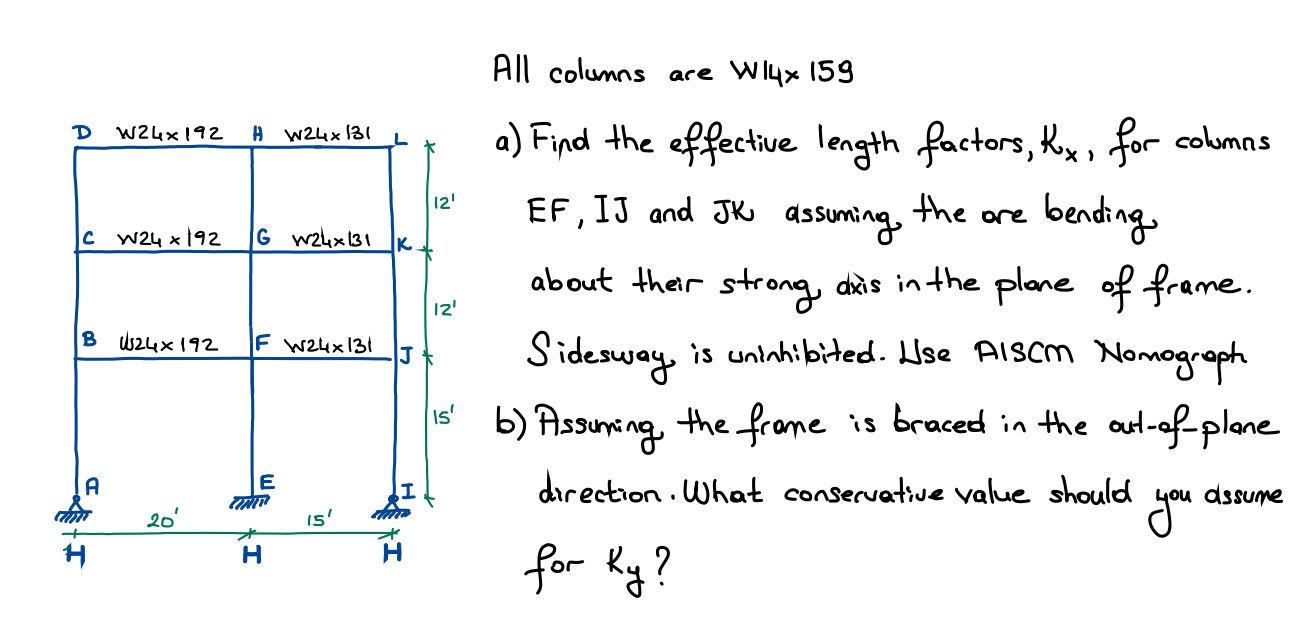 All columns are W14x159
D W24x192 H W24x131 L
a) Find the effective length factors, Kx, for columns
12'
EF, IJ and JK assuming the are bending
C W24x192 G W24x131 K
about their strong axis in the plane of frame.
12'
B W24x192 F W24x131 J
Sidesway is uninhibited. Use AISCM Nomograph
15'
b) Assuming the frame is braced in the out-of-plane
A E I
direction. What conservative value should you assume
20' 15'
H H H
for Ky?